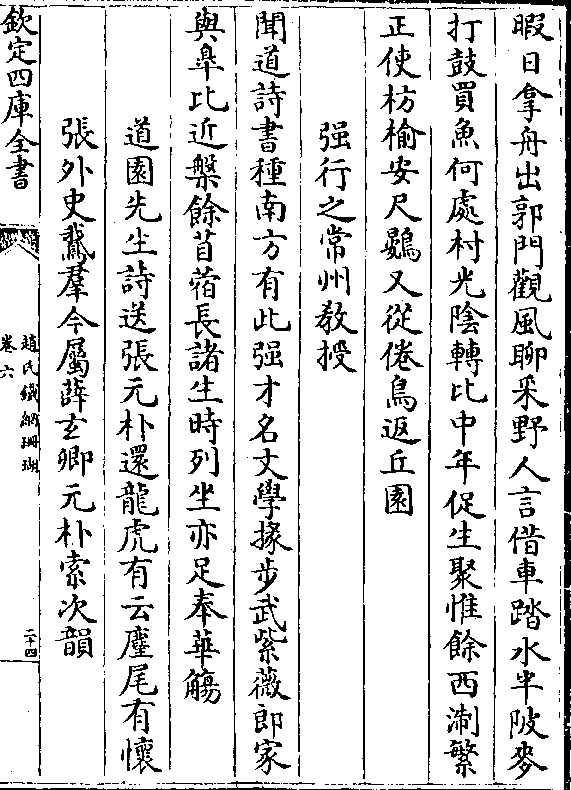 暇日拿舟出郭門觀風聊采野人言借車踏水半陂麥
打鼓買魚何處村光陰轉比中年促生聚惟餘西淛繁
正使枋榆安尺鷃又從倦鳥返丘園
強行之常州教授
聞道詩書種南方有此强才名文學掾步武紫薇郎家
與臯比近槃餘苜蓿長諸生時列坐亦足奉華觴
道園先生詩送張元朴還龍虎有云麈尾有懷
張外史鵞羣今屬薛玄卿元朴索次韻
欽定四庫全書
趙氏鐵網珊瑚
卷六
二十四